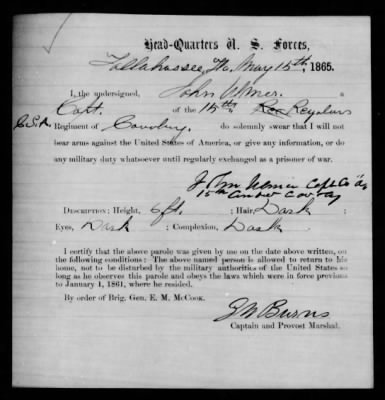 Head-Quarters U. S. Forces,
Tallahassee, Fla. May 15th, 1865.
I, the undersigned, John Ulmer. a
Capt. of the 15th Regulars
C.S.A. Regiment of Cavalry. do solemnly swear that I will not
bear arms against the United States of America, or give any information, or do
any military duty whatsoever until regularly exchanged as a prisoner of war.
John Ulmer Capt Co
15th Cav
DESCRIPTION: Height, 6 ft. ; Hair, Dark ;
Eyes, Dark ; Complexion, Dark
I certify that the above parole was given by use on the date above written, on
the following conditions: The above named person is allowed to return to his
home, not to be disturbed by the military authorities of the United States so
long as he observes this parole and obeys the laws which were in force previous
to January 1, 1861, where he resided.
By order of Brig. Gen. E. M. McCook.
Burns
Captain and Provost Marshal.